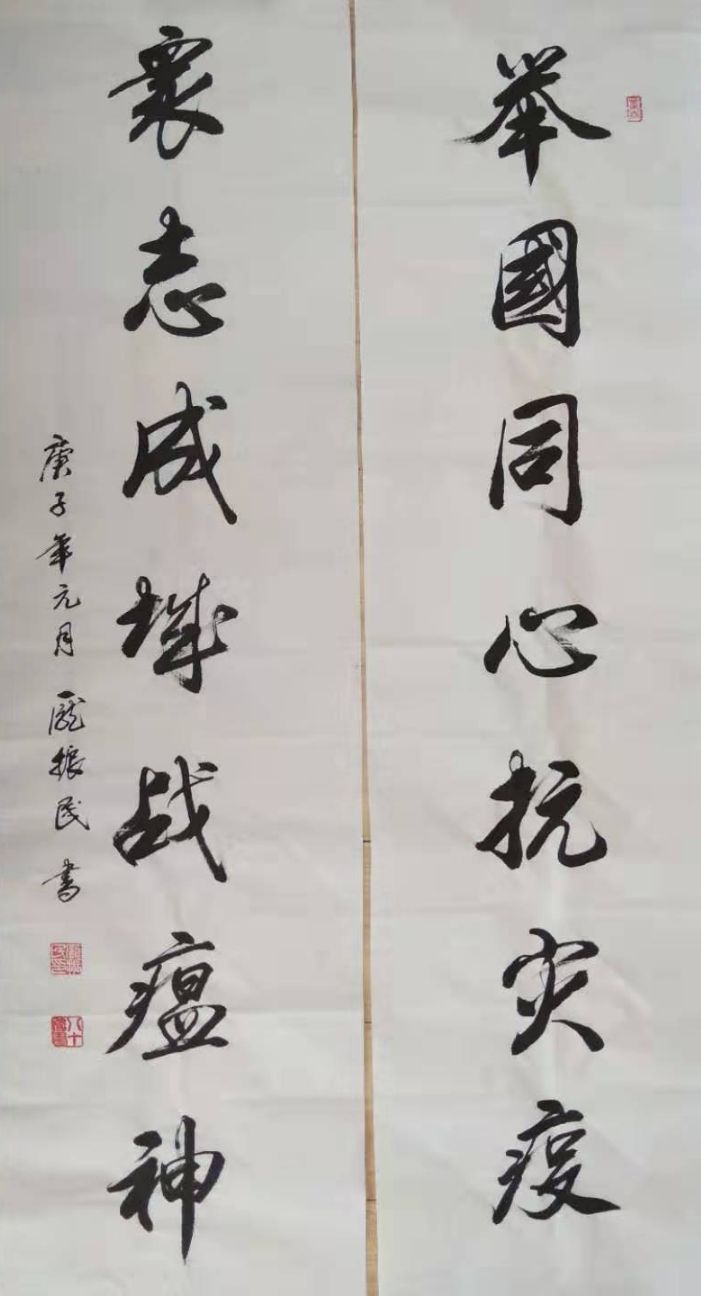 举國同心抗灾疫
衆志成城战瘟神
庚子年元月 龐振民 書